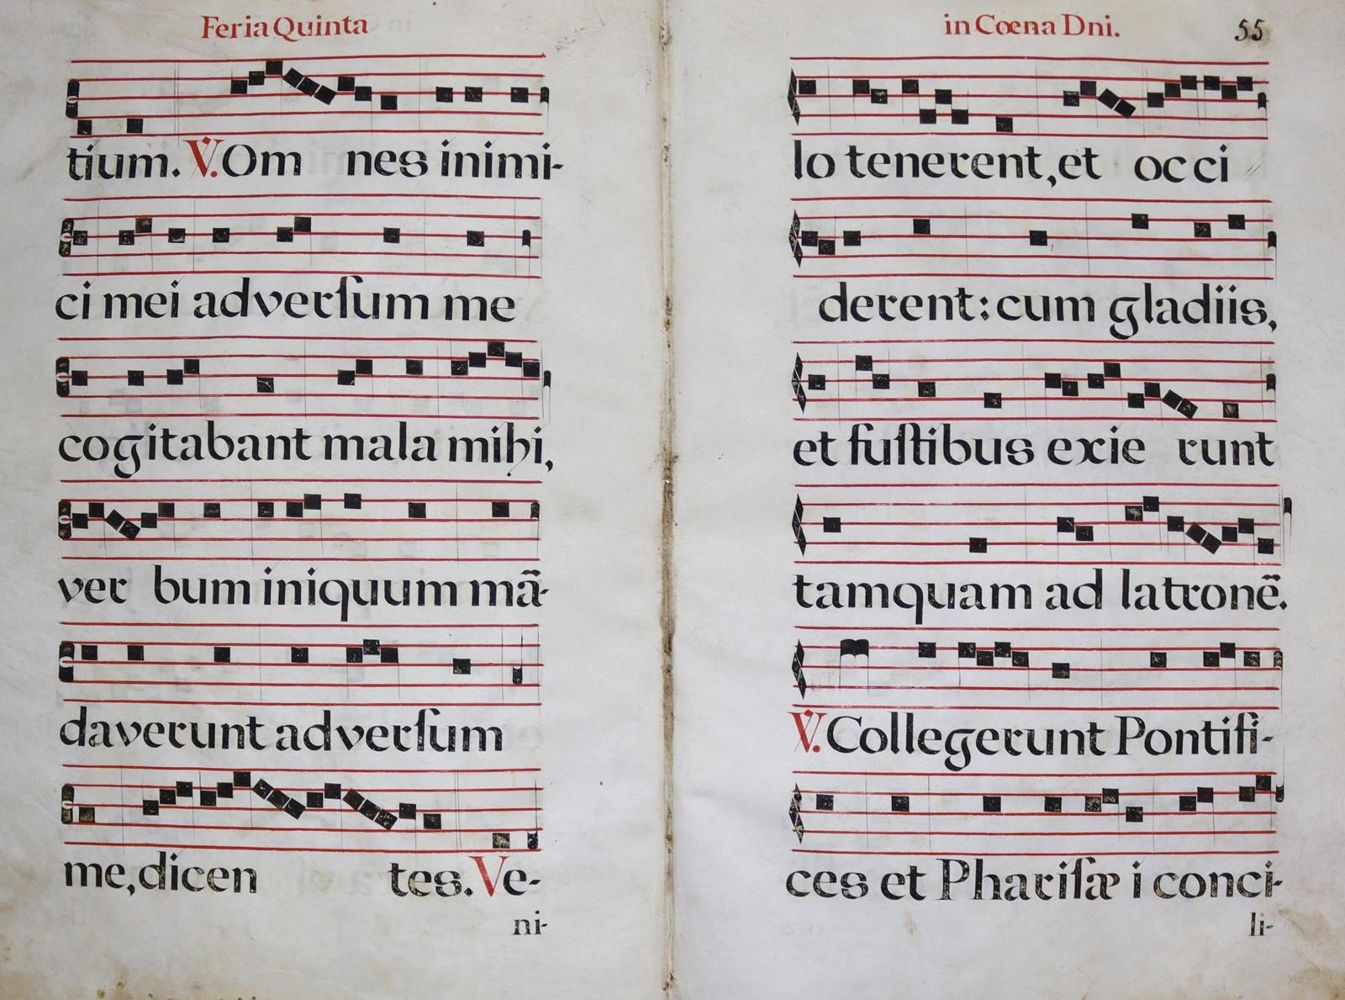 Feria Quinta
tium. V. Om nes inimi-
ci mei adverſum me
cogitabant mala mihi,
ver bum iniquum mã-
daverunt adverſum
me, dicen tes. Ve-
ni-
in Cœna Dni. 55
lo tenerent, et occi
derent: cum gladiis,
et fuſtibus exie runt
tamquam ad latronẽ.
V. Collegerunt Pontifi-
ces et Phariſæ i conci-
li-